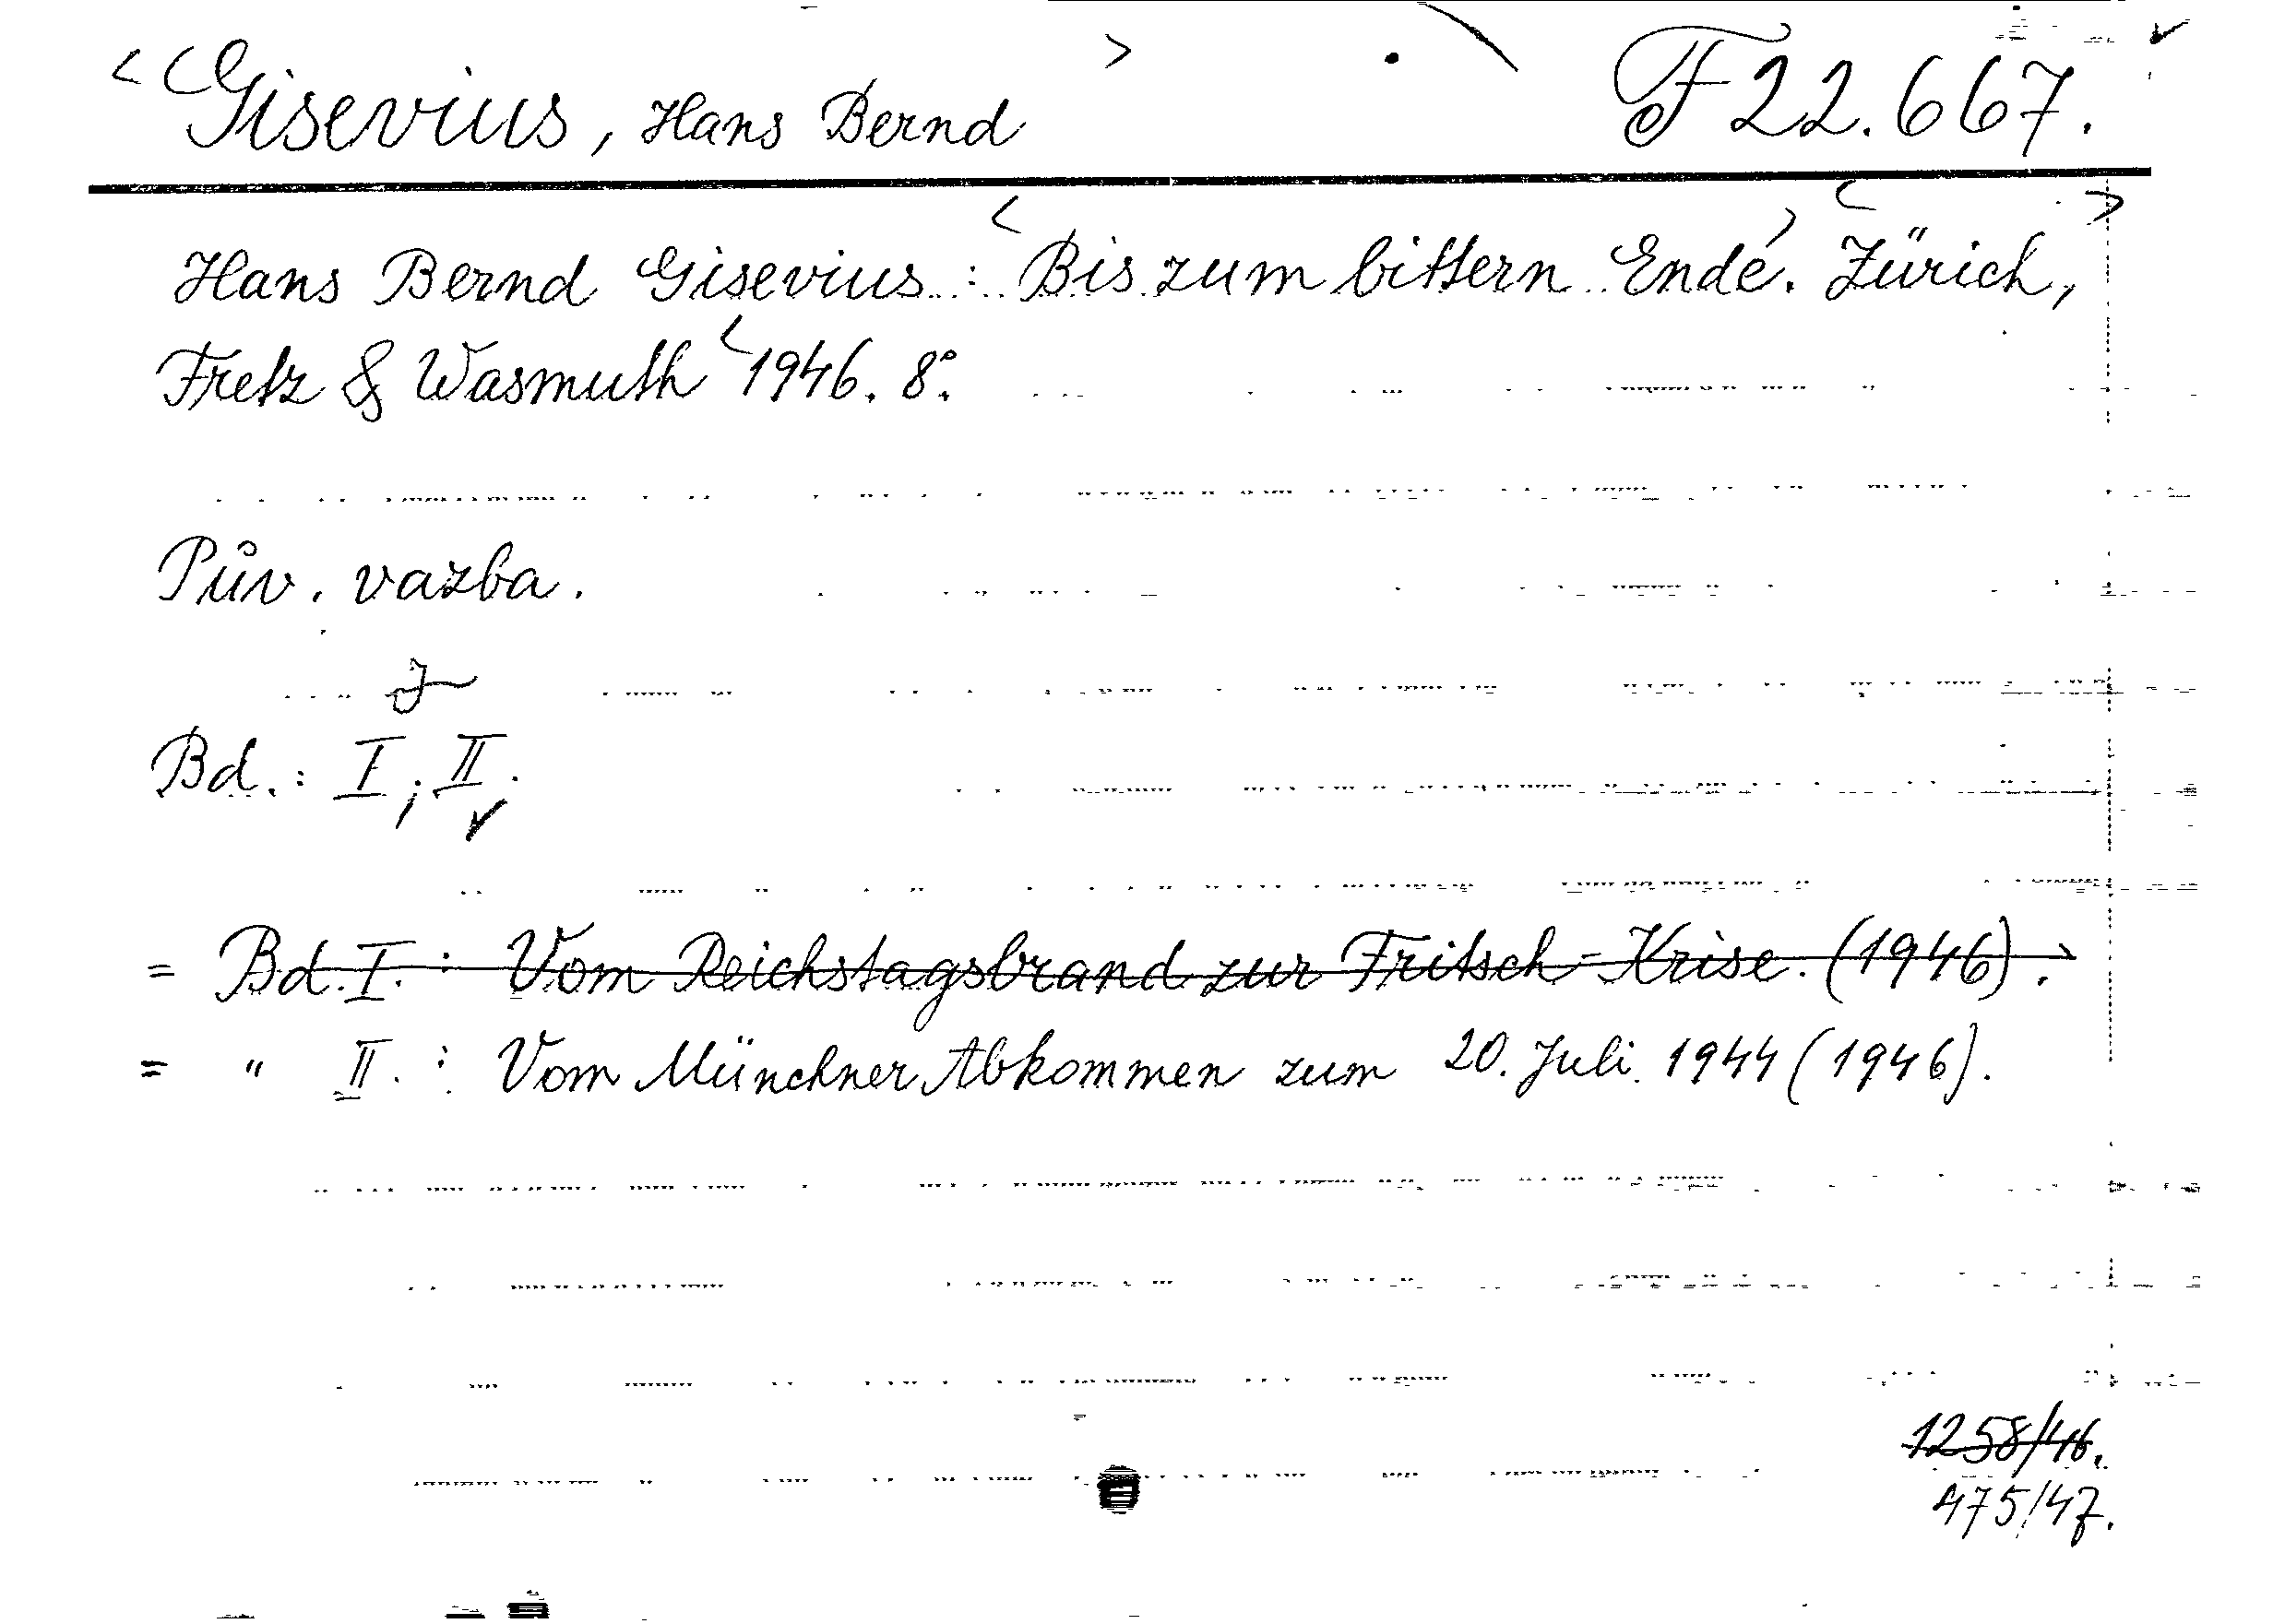 <Gisevius, Hans Bernd> F 22.667.
Hans Bernd Gisevius: <Bis zum bittern Ende>. <Zürich,>
Fretz & Wasmuth <1946. 8°.
Pův. vazba.
Bd.: I; II.
= Bd. I.: Vom Reichstagsbrand zur Fritsch-Krise. (1946).
= " II.: Vom Münchner Abkommen zum 20. Juli 1944 (1946).
1258/46.
475/47.